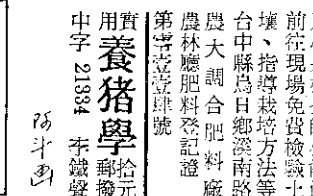 前往現場免費檢驗土
壤、指導栽培方法等
台中縣烏日鄉溪南路
農大調合肥料廠
農林廳肥料登記證
第零壹壹肆號
實用養猪學 拾元郵撥
中字 21334 李鐵聲